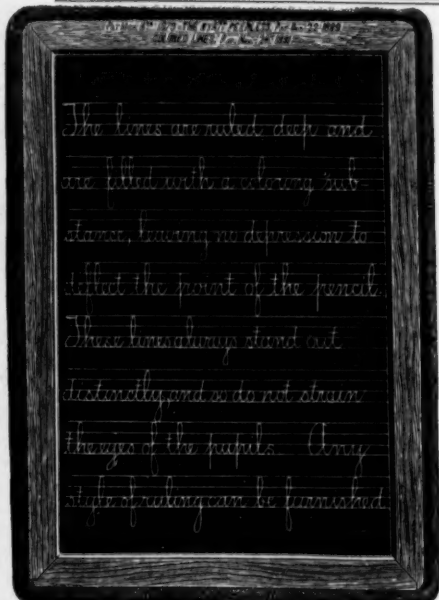 The lines are ruled deep and
are filled with a coloring sub-
stance, leaving no depression to
deflect the point of the pencil.
These lines always stand out
distinctly and so do not strain
the eyes of the pupils. Any
style of ruling can be furnished